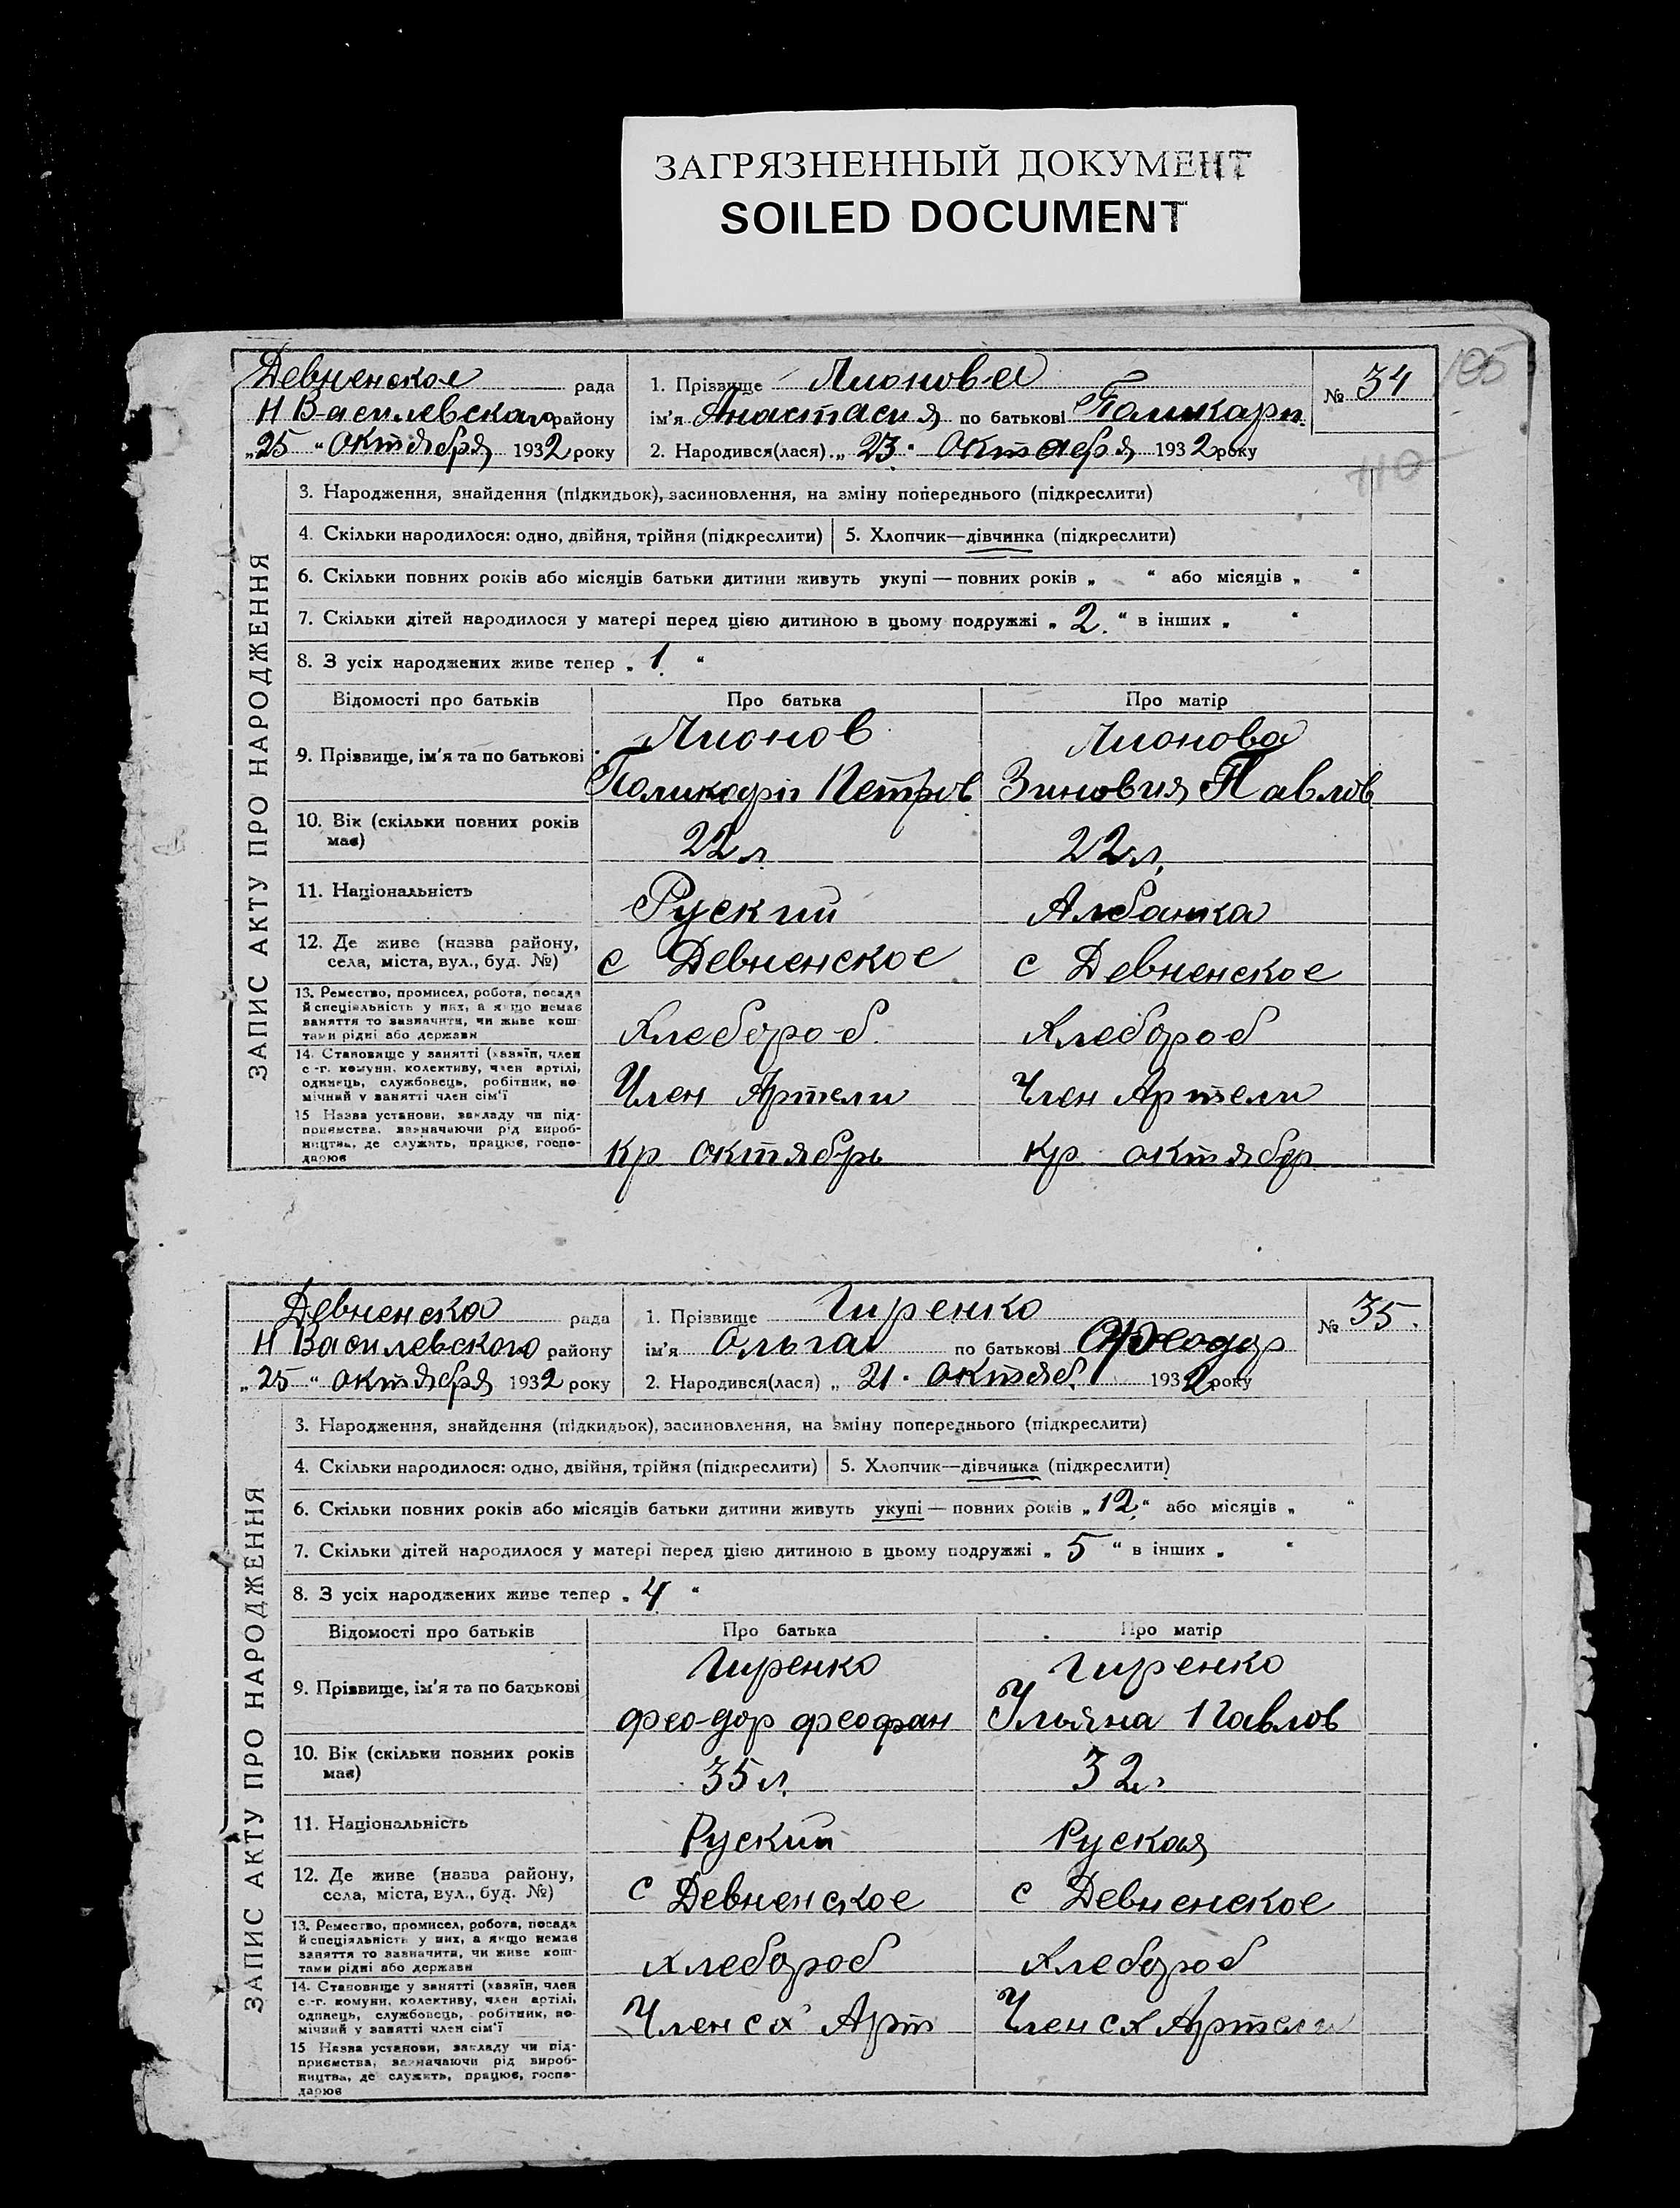 ЗАГРЯЗНЕННЫЙ ДОКУМЕНТ
SOILED DOCUMENT
105
110
ЗАПИС АКТУ ПРО НАРОДЖЕННЯ
Девненское рада
Н Василевского району
„25 " октября 1932 року
1. Прізвище Лионова
ім'я Анастасия по батькові Поликарп.
2. Народився(лася) „ 23 " Октября 1932 року
№ 34
3. Народження, знайдення (підкидьок), засиновлення, на зміну попереднього (підкреслити)
4. Скільки народилося: одно, двійня, трійня (підкреслити) 5. Хлопчик—дівчинка (підкреслити)
6. Скільки повних років або місяців батьки дитини живуть укупі — повних років „ " або місяців „ "
7. Скільки дітей народилося у матері перед цією дитиною в цьому подружжі „ 2. " в інших „ "
8. З усіх народжених живе тепер „ 1. "
Відомості про батьків Про батька Про матір
9. Прізвище, ім'я та по батькові
Лионов Лионова
Поликарп Петров Зиновия Павлов
10. Вік (скільки повних років має)
22 л 22 л.
11. Національність
Руский Албанка
12. Де живе (назва району,
села, міста, вул., буд. №)
с Девненское с Девненское
13. Ремество, промисел, робота, посада
й спеціяльність у них, а якщо немає
заняття то зазначити, чи живе кош-
тами рідні або держави
Хлебороб. Хлебороб
14. Становище у занятті (хазяїн, член
с.-г. комуни, колективу, член артілі,
одинець, службовець, робітник, по-
мічний у занятті член сім'ї
Член Артели Член Артели
15 Назва установи, закладу чи під-
приємства, зазначаючи рід вироб-
ництва, де служить, працює, госпо-
дарює
кр октябрь кр октябр
ЗАПИС АКТУ ПРО НАРОДЖЕННЯ
Девненска рада
Н Василевского району
„25 " октября 1932 року
1. Прізвище Гиренко
ім'я Ольга по батькові Феодор
2. Народився(лася) „ 21 " октяб. 1932 року
№ 35.
3. Народження, знайдення (підкидьок), засиновлення, на зміну попереднього (підкреслити)
4. Скільки народилося: одно, двійня, трійня (підкреслити) 5. Хлопчик—дівчинка (підкреслити)
6. Скільки повних років або місяців батьки дитини живуть укупі — повних років „ 12. " або місяців „ "
7. Скільки дітей народилося у матері перед цією дитиною в цьому подружжі „ 5 " в інших „ "
8. З усіх народжених живе тепер „ 4. "
Відомості про батьків Про батька Про матір
9. Прізвище, ім'я та по батькові
Гиренко Гиренко
феодор феофан Ульяна Павлов
10. Вік (скільки повних років має)
35 л. 32 л.
11. Національність
Руский Руская
12. Де живе (назва району,
села, міста, вул., буд. №)
с Девненское с Девненское
13. Ремество, промисел, робота, посада
й спеціяльність у них, а якщо немає
заняття то зазначити, чи живе кош-
тами рідні або держави
хлебороб Хлебороб
14. Становище у занятті (хазяїн, член
с.-г. комуни, колективу, член артілі,
одинець, службовець, робітник, по-
мічний у занятті член сім'ї
Член с х Арт Член с х Артели
15 Назва установи, закладу чи під-
приємства, зазначаючи рід вироб-
ництва, де служить, працює, госпо-
дарює